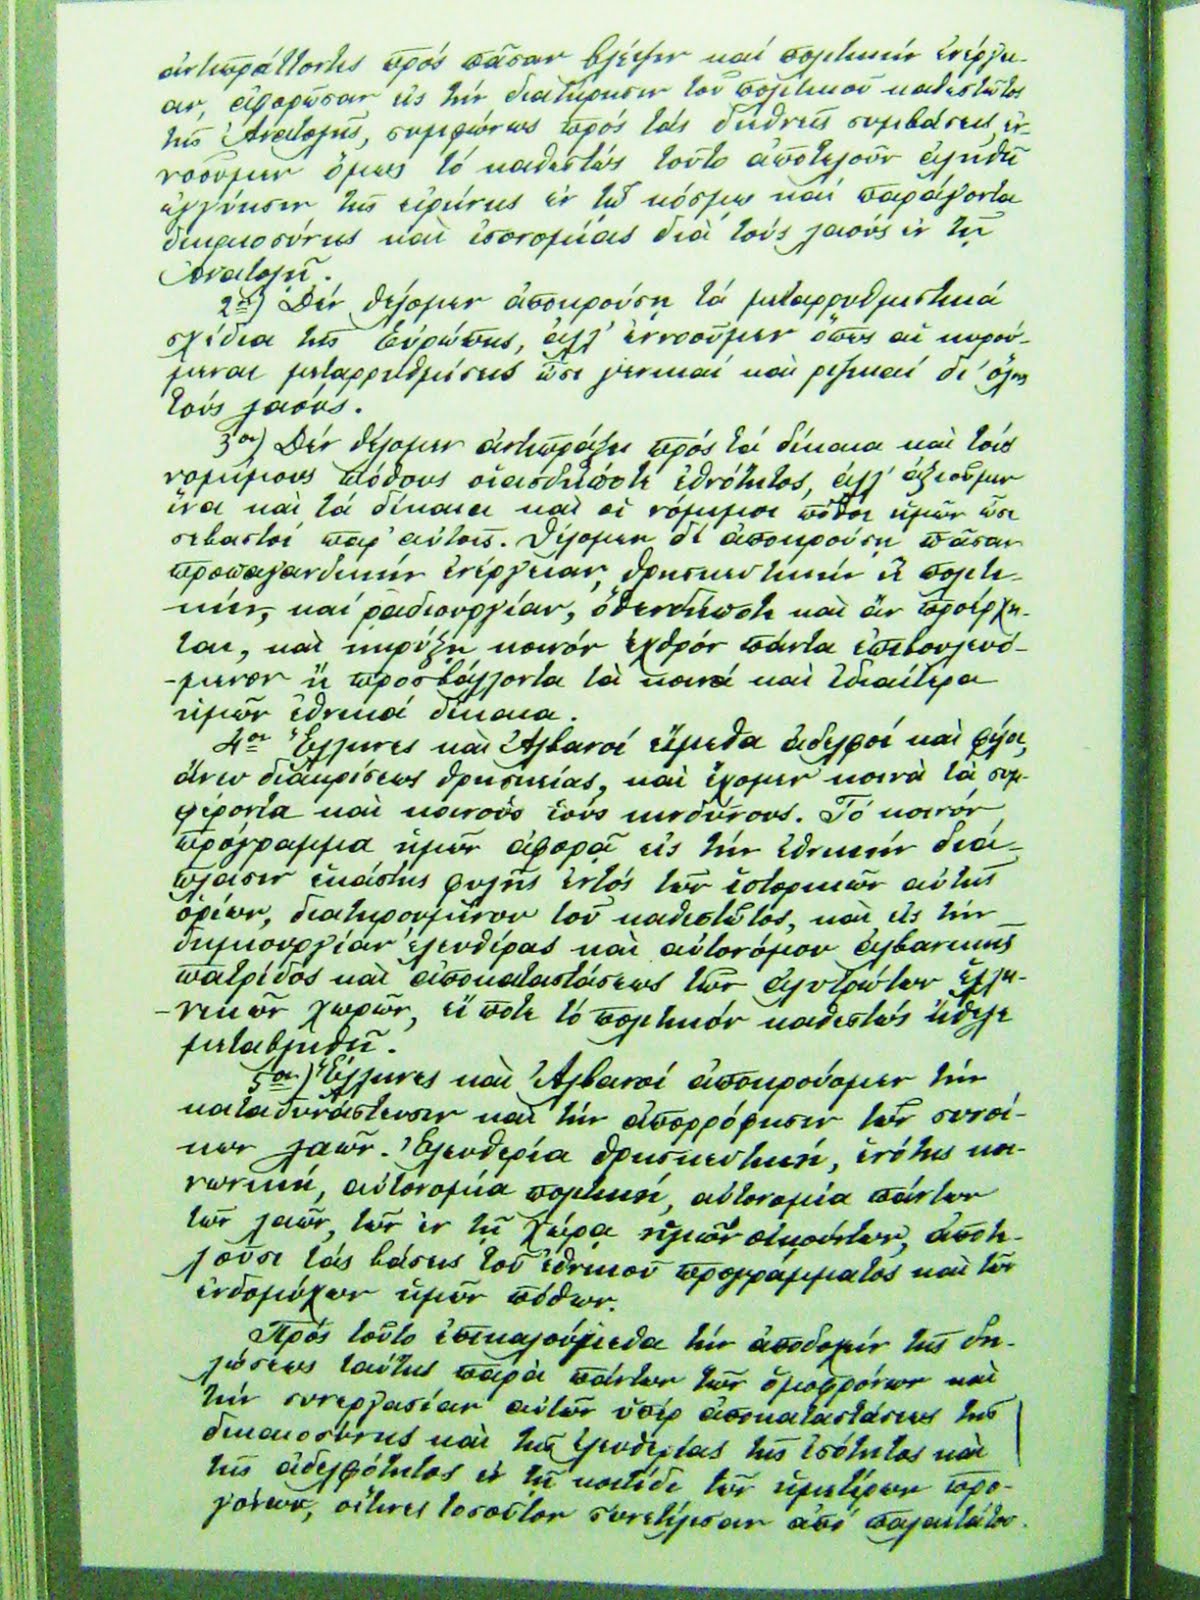 ἀντιπράττοντες πρός πᾶσαν βλέψιν καί πολιτικήν ἐνέργει-
αν, ἀφορῶσαν εἰς τήν διατήρησιν τοῦ πολιτικοῦ καθεστῶτος
τῆς Ἀνατολῆς, συμφώνως πρός τάς διεθνεῖς συμβάσεις, ἐν-
νοοῦμεν ὅμως τό καθεστώς τοῦτο ἀποτελοῦν ἀληθῆ
ἐγγύησιν τῆς εἰρήνης ἐν τῷ κόσμῳ καί παράγοντα
δικαιοσύνης καὶ ἰσονομίας διὰ τούς λαούς ἐν τῇ
Ἀνατολῇ.
2ον) Δέν θέλομεν ἀποκρούσῃ τά μεταρρυθμιστικά
σχέδια τῆς Εὐρώπης, ἀλλ' ἐννοοῦμεν ὅπως αἱ κυρού-
μεναι μεταρρυθμίσεις ὦσι γενικαί καὶ ριζικαί δι' ὅλους
τούς λαούς.
3ον) Δέν θέλομεν ἀντιπράξῃ πρός τά δίκαια καὶ τούς
νομίμους πόθους οἱασδήποτε ἐθνότητος, ἀλλ' ἀξιοῦμεν
ἵνα καὶ τά δίκαια καὶ οἱ νόμιμοι πόθοι ἡμῶν ὦσι
σεβαστοί παρ' αὐτοῖς. Θέλομεν δέ ἀποκρούσῃ πᾶσαν
προπαγανδικήν ἐνέργειαν, θρησκευτικήν ἤ πολιτι-
κήν, καί ραδιουργίαν, ὁθενδήποτε καὶ ἄν προέρχη-
ται, καὶ κηρύξῃ κοινόν ἐχθρόν πάντα ἐπιβουλευό-
-μενον ἤ προσβάλλοντα τὰ κοινά καὶ ἰδιαίτερα
ἡμῶν ἐθνικά δίκαια.
4ον Ἕλληνες καὶ Ἀλβανοί εἴμεθα ἀδελφοί καὶ φίλοι,
ἄνευ διακρίσεως θρησκείας, καὶ ἔχομεν κοινὰ τὰ συμ-
φέροντα καὶ κοινούς τούς κινδύνους. Τό κοινόν
πρόγραμμα ἡμῶν ἀφορᾷ εἰς τήν ἐθνικήν διά-
πλασιν ἑκάστης φυλῆς ἐντός τῶν ἱστορικῶν αὐτῆς
ὁρίων, διατηρουμένου τοῦ καθεστῶτος, καὶ εἰς τήν
δημιουργίαν ἐλευθέρας καὶ αὐτονόμου ἀλβανικῆς
πατρίδος καὶ ἀποκαταστάσεως τῶν ἀλυτρώτων ἑλλη-
-νικῶν χωρῶν, εἴ ποτε τό πολιτικόν καθεστώς ἤθελε
μεταβληθῆ.
5ον) Ἕλληνες καὶ Ἀλβανοί ἀποκρούομεν τήν
καταδυνάστευσιν καὶ τήν ἀπορρόφησιν τῶν συνοί-
κων λαῶν. Ἐλευθερία θρησκευτική, ἑνότης κοι-
νωνική, αὐτονομία πολιτική, αὐτονομία πάντων
τῶν λαῶν, τῶν ἐν τῇ χώρᾳ ἡμῶν οἰκούντων, ἀποτε-
λοῦσι τάς βάσεις τοῦ ἐθνικοῦ προγράμματος καὶ τῶν
ἐνδομύχων ἡμῶν πόθων.
Πρός τοῦτο ἐπικαλούμεθα τήν ἀποδοχήν τῆς δη-
λώσεως ταύτης παρὰ πάντων τῶν ὁμοφρόνων καὶ
τήν συνεργασίαν αὐτῶν ὑπέρ ἀποκαταστάσεως τῆς
δικαιοσύνης καὶ τῆς ἐλευθερίας τῆς ἰσότητος καὶ
τῆς ἀδελφότητος ἐν τῇ κοιτίδι τῶν ἡμετέρων προ-
γόνων, οἵτινες τοσοῦτον συνετέλεσαν ἀπό παλαιτάτου